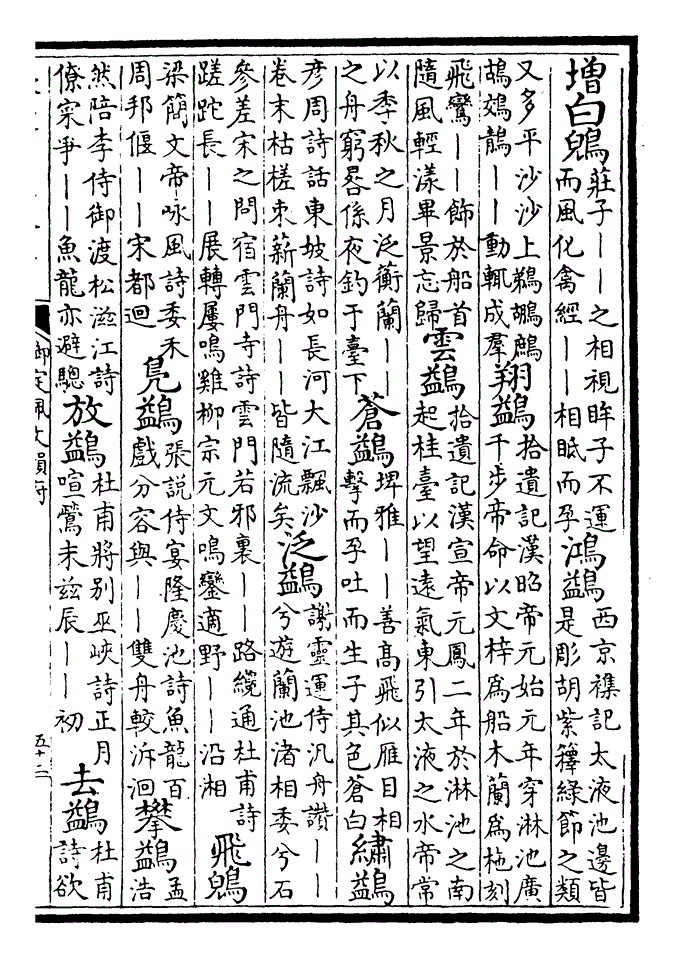 增白鶂莊子——之相視眸子不運而風化禽經——相眡而孕鴻鷁西京襍記太液池邊皆是彫胡紫籜綠節之類
又多平沙沙上鵜鶘鷓鴣鵁鶄——動輒成羣翔鷁拾遺記漢昭帝元始元年穿淋池廣千步帝命以文梓爲船木蘭爲柂刻
飛鸞——飾於船首隨風輕漾畢景忘歸雲鷁拾遺記漢宣帝元鳳二年於淋池之南起桂臺以望遠氣東引太液之水帝常
以季秋之月泛蘅蘭——之舟窮晷係夜釣于臺下蒼鷁埤雅——善高飛似雁目相擊而孕吐而生子其色蒼白繡鷁
彦周詩話東坡詩如長河大江飄沙卷末枯槎朿薪蘭舟——皆隨流矣泛鷁謝靈運侍汎舟讚——兮遊蘭池渚相委兮石
參差宋之問宿雲門寺詩雲門若邪裏——路纔通杜甫詩蹉跎長——展轉屢鳴雞柳宗元文鳴鑾適野——沿湘飛鶂
梁簡文帝咏風詩委禾周邦偃——宋都迴鳧鷁張説侍宴隆慶池詩魚龍百戲分容與——雙舟較泝洄攀鷁孟浩
然陪李侍御渡松滋江詩僚寀爭——魚龍亦避驄放鷁杜甫將別巫峽詩正月喧鶯未兹辰——初去鷁杜甫詩欲
御定佩文韻府